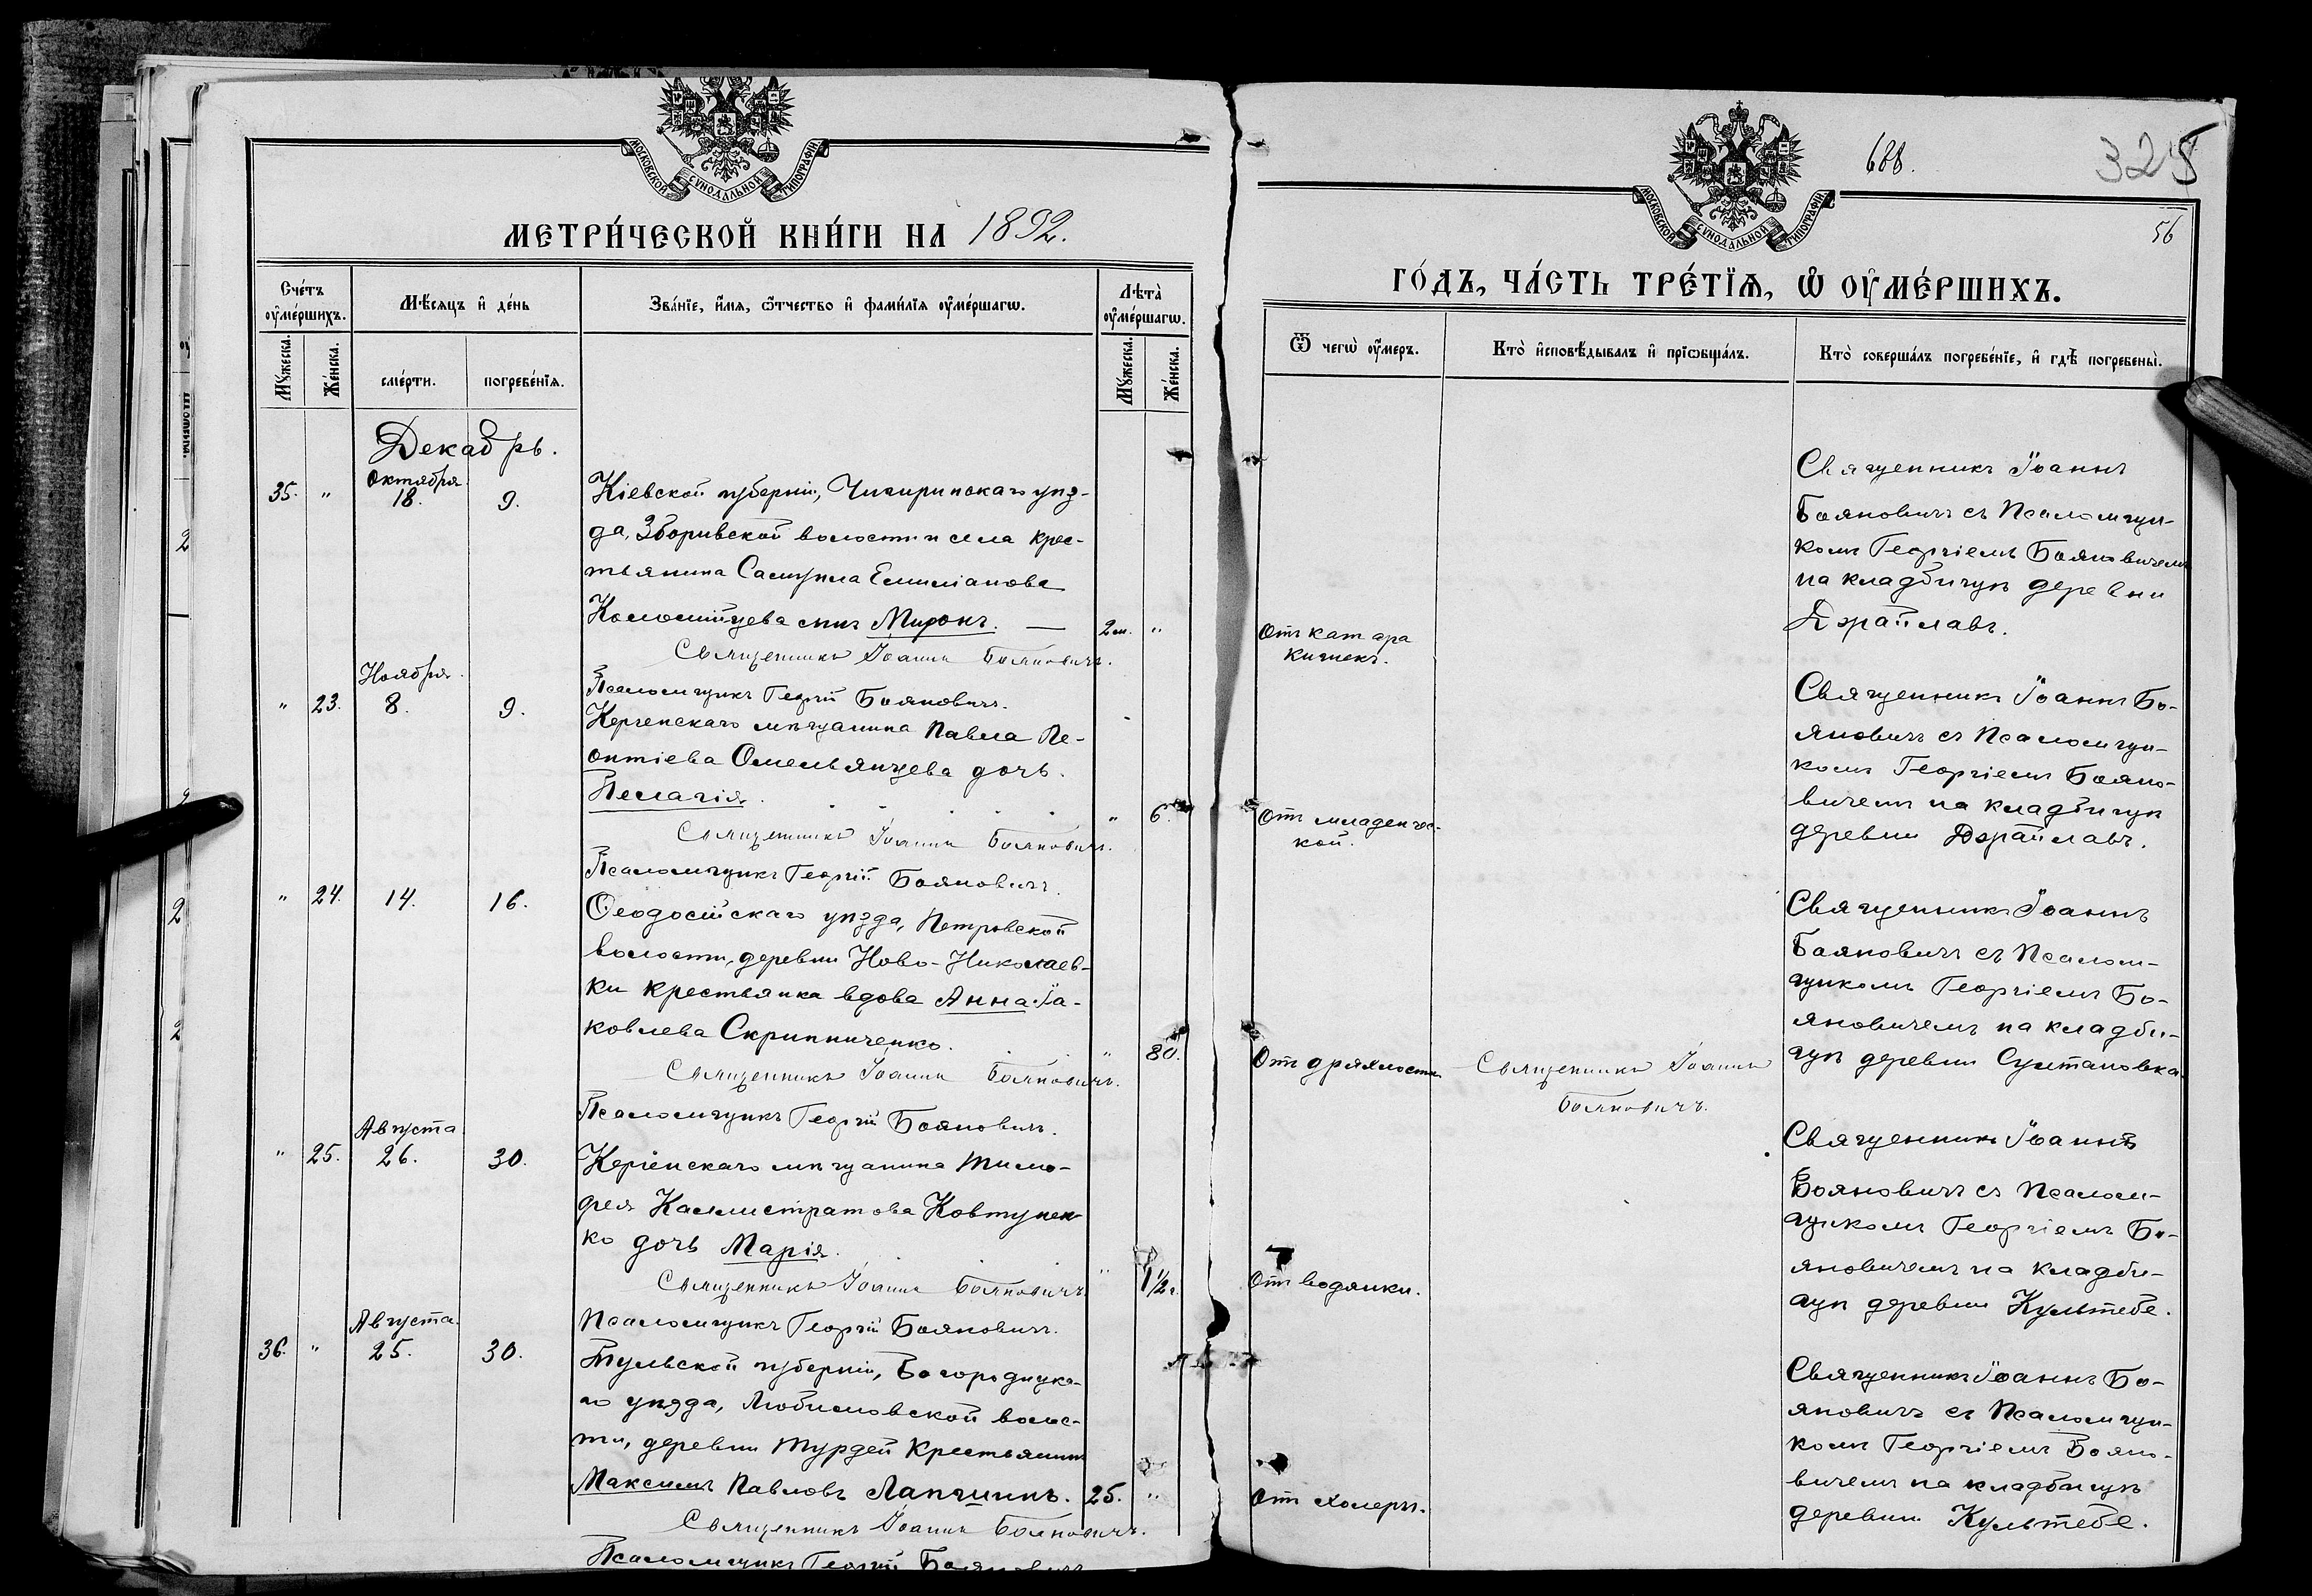 МОСКОВСКОЙ СѴНОДАЛЬНОЙ ТИПОГРАФІИ
МЕТРИ́ЧЕСКОЙ КНИ́ГИ НА 1892.
Сче́тъ оу҆ме́ршихъ.
Мѣ́сяцъ и҆ де́нь
Зва́нїе, и҆́мя, ѻ҆́тчество и҆ фами́лїя оу҆ме́ршагѡ.
Лѣ́та оу҆ме́ршагѡ.
Мꙋ́жеска.
Же́нска.
сме́рти.
погребе́нїя.
Мꙋ́жеска.
Же́нска.
Декабрь.
Октября
35. " 18. 9.
Кіевской губерніи, Чигиринскаго уѣз-
да, Зборивской волости и села крес-
тьянина Самуила Емиліанова
Коломійцева сынъ Миронъ. — 2 м. "
Священникъ Іоаннъ Бояновичъ.
Псаломщикъ Георгій Бояновичъ.
Ноября.
" 23. 8. 9.
Керченскаго мѣщанина Павла Ле-
онтіева Омельянцева дочь
Пелагія. " 6.
Священникъ Іоаннъ Бояновичъ.
Псаломщикъ Георгій Бояновичъ.
" 24. 14. 16.
Ѳеодосійскаго уѣзда, Петровской
волости, деревни Ново-Николаев-
ки крестьянка вдова Анна Іа-
ковлева Скрипниченко. " 80.
Священникъ Іоаннъ Бояновичъ.
Псаломщикъ Георгій Бояновичъ.
Августа
" 25. 26. 30.
Керченскаго мѣщанина Тимо-
фея Каллистратова Ковтунен-
ко дочь Марія. " 1½ г.
Священникъ Іоаннъ Бояновичъ.
Псаломщикъ Георгій Бояновичъ.
Августа.
36. " 25. 30.
Тульской губерніи, Богородицка-
го уѣзда, Любимовской волос-
ти, деревни Турдей крестьянинъ
Максимъ Павловъ Лапшинъ. 25. "
Священникъ Іоаннъ Бояновичъ.
Псаломщикъ Георгій Бояновичъ
688.
325
56
МОСКОВСКОЙ СѴНОДАЛЬНОЙ ТИПОГРАФІИ
ГО́ДЪ, ЧА́СТЬ ТРЕ́ТЇѦ, Ѽ ОУ҆МЕ́РШИХЪ.
Ѿ чегѡ̀ оу҆́меръ.
Кто̀ и҆сповѣ́дывалъ и҆ прїѡбща́лъ.
Кто̀ соверша́лъ погребе́нїе, и҆ гдѣ̀ погребены̀.
Священникъ Іоаннъ
Бояновичъ съ Псаломщи-
комъ Георгіемъ Бояновичемъ
на кладбищѣ деревни
Джайлавъ.
Отъ катара
кишекъ.
Священникъ Іоаннъ Бо-
яновичъ съ Псаломщи-
комъ Георгіемъ Бояно-
вичемъ на кладбищѣ
деревни Джайлавъ.
Отъ младенчес-
кой.
Священникъ Іоаннъ
Бояновичъ съ Псалом-
щикомъ Георгіемъ Бо-
яновичемъ на кладби-
щѣ деревни Султановка.
Отъ дряхлости
Священникъ Іоаннъ
Бояновичъ.
Священникъ Іоаннъ
Бояновичъ съ Псалом-
щикомъ Георгіемъ Бо-
яновичемъ на кладби-
щѣ деревни Культебе.
Отъ водянки.
Священникъ Іоаннъ Бо-
яновичъ съ Псаломщи-
комъ Георгіемъ Бояно-
вичемъ на кладбищѣ
деревни Культебе.
Отъ холеры.